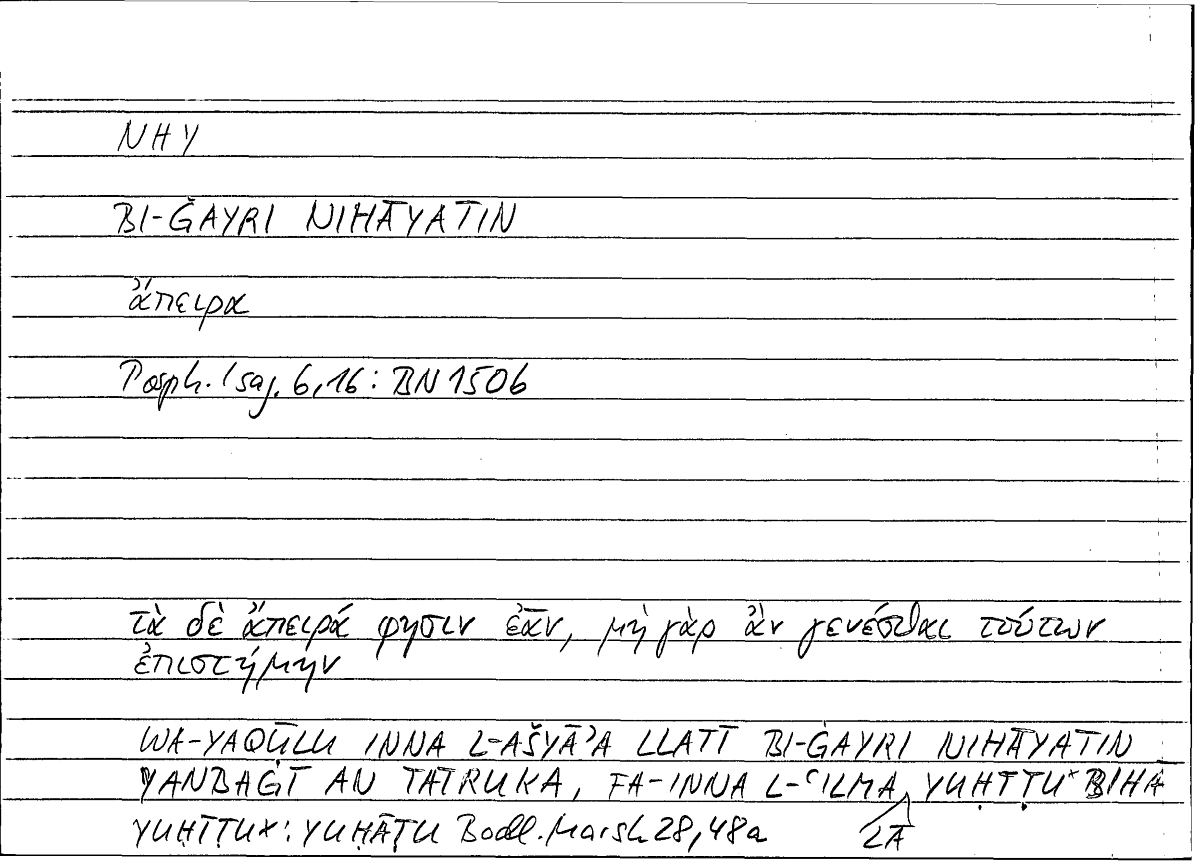 NHY
BI-ĠAYRI NIHĀYATIN
ἄπειρα
Porph. Isag. 6,16: BN 150b
τὰ δὲ ἄπειρά φησιν ἐᾶν, μὴ γὰρ ἂν γενέσθαι τούτων
ἐπιστήμην
WA-YAQŪLU INNA L-AŠYĀʾA LLATĪ BI-ĠAYRI NIHĀYATIN
YANBAĠĪ AN TATRUKA, FA-INNA L-ʿILMA LĀ YUḤĪṬU* BIHĀ
YUḤĪṬU*: YUḤĀṬU Bodl. Marsh 28,48a